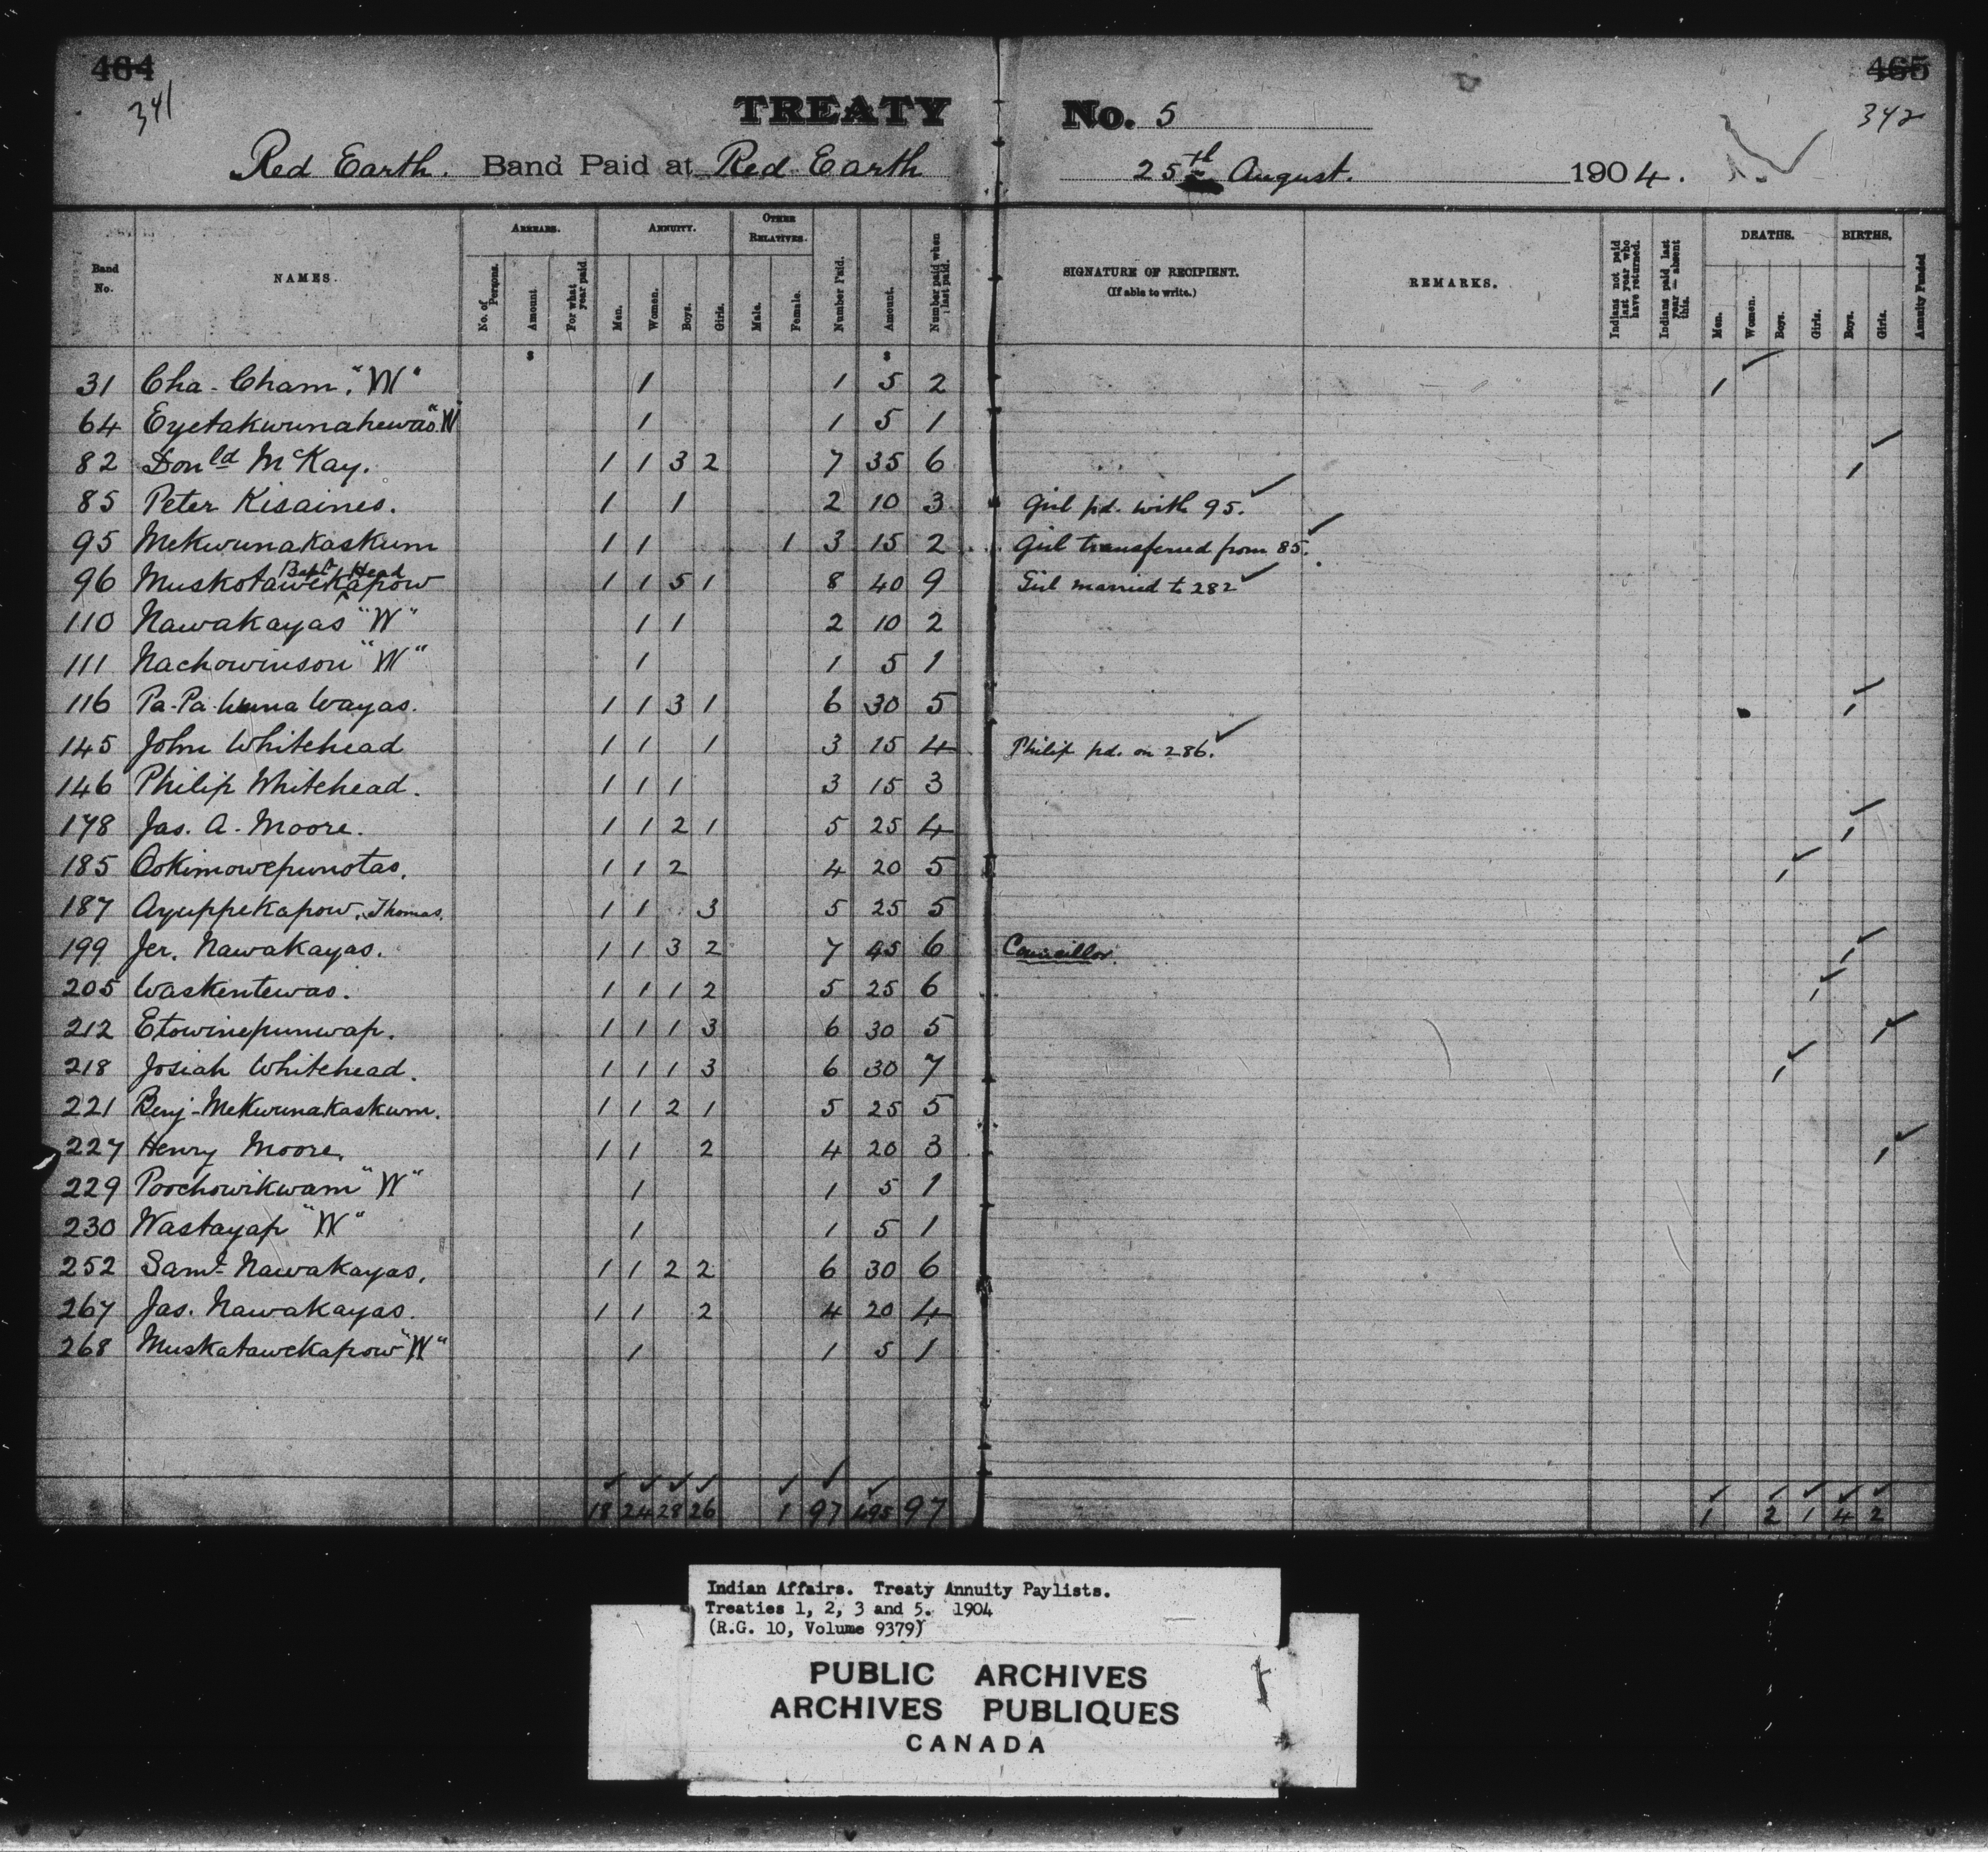 464
465
341
342
TREATY No. 5
Red Earth. Band Paid at Red Earth 25th August. 1904.
Band No. NAMES. ARREARS. No. of Persons. Amount For what year paid. ANNUITY. Men. Women. Boys. Girls. OTHER RELATIVES. Male. Female. Number Paid. Amount. Number paid when last paid. SIGNATURE OF RECIPIENT. (If able to write.) REMARKS. Indians not paid last year who have returned. Indians paid last year — absent this. DEATHS. Men. Women. Boys. Girls. BIRTHS. Boys. Girls. Annuity Funded
$ $
31 Cha-Cham. "W" 1 1 5 2 1
64 Eyetakwunahewas "W" 1 1 5 1
82 Donld McKay. 1 1 3 2 7 35 6 1
85 Peter Kisaines. 1 1 2 10 3 Girl pd. with 95.
95 Mekwunakaskum 1 1 1 3 15 2 Girl transferred from 85.
96 Muskotawekapow Bapt. Head 1 1 5 1 8 40 9 Girl married to 282
110 Nawakayas "W" 1 1 2 10 2
111 Nachowinson "W" 1 1 5 1
116 Pa-Pa-wuna Wayas. 1 1 3 1 6 30 5 1
145 John Whitehead 1 1 1 3 15 4 Philip pd. on 286.
146 Philip Whitehead. 1 1 1 3 15 3
178 Jas. A. Moore. 1 1 2 1 5 25 4 1
185 Ookimowepunotas. 1 1 2 4 20 5 1
187 Ayuppekapow, Thomas. 1 1 3 5 25 5
199 Jer. Nawakayas. 1 1 3 2 7 45 6 Councillor. 1
205 Waskentewas. 1 1 1 2 5 25 6 1
212 Etowinepunwap. 1 1 1 3 6 30 5 1
218 Josiah Whitehead. 1 1 1 3 6 30 7 1
221 Benj-Mekwunakaskum. 1 1 2 1 5 25 5
227 Henry Moore. 1 1 2 4 20 3 1
229 Poochowikwam "W" 1 1 5 1
230 Wastayap "W" 1 1 5 1
252 Saml Nawakayas. 1 1 2 2 6 30 6
267 Jas. Nawakayas. 1 1 2 4 20 4
268 Muskatawekapow "W" 1 1 5 1
18 24 28 26 1 97 495 97 1 2 1 4 2
Indian Affairs. Treaty Annuity Paylists.
Treaties 1, 2, 3 and 5. 1904
(R.G. 10, Volume 9379)
PUBLIC ARCHIVES
ARCHIVES PUBLIQUES
CANADA